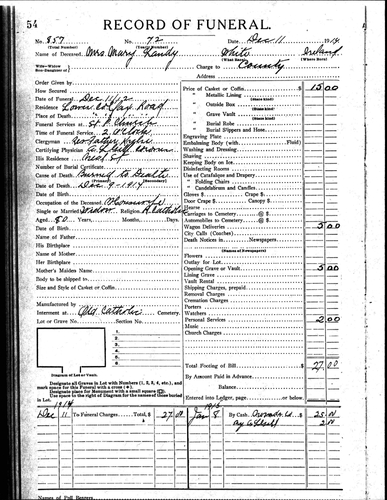 54
RECORD OF FUNERAL.
No. 857 No. 72 Date Dec 11 1914
(Total Number) (Yearly Number)
Name of Deceased Mrs. Mary Landy White Ireland
(What Race) (Where Born)
Charge to County
Address
Order Given by
How Secured
Date of Funeral Dec 11/12
Residence Lower Road
Place of Death
Funeral Services at St P. Church
Time of Funeral Service 2 O'Clock
Clergyman Rev Father
Certifying Physician
His Residence
Number of Burial Certificate
Cause of Death Burned to Death
(Primary) (Secondary)
Date of Death Dec 9-1914
Occupation of the Deceased Housewife
Single or Married Widow Religion R. Catholic
Aged 80 Years, Months, Days
Date of Birth
Name of Father
His Birthplace
Name of Mother
Her Birthplace
Mother's Maiden Name
Body to be shipped to
Size and Style of Casket or Coffin
Manufactured by
Interment at Old Catholic Cemetery.
Lot or Grave No. Section No.
1
2
3
4
5
6
Diagram of Lot or Vault.
Designate all Graves in Lot with Numbers (1, 2, 3, 4, etc.), and
mark space for this Funeral with a cross (+)
Designate place for Monument with a small square
Use space in right of Diagram for the names of those buried
in Lot.
Price of Casket or Coffin $ 15 00
" Metallic Lining
(State kind)
" Outside Box
(State kind)
" Grave Vault
(State kind)
" Burial Robe
(State kind)
" Burial Slippers and Hose
Engraving Plate
Embalming Body (with Fluid)
Washing and Dressing
Shaving
Keeping Body on Ice
Disinfecting Rooms
Use of Catafalque and Drapery
" Folding Chairs
" Candelabrum and Candles
Gloves $ Crape $
Door Crape $ Canopy $
Hearse
Carriages to Cemetery @ $
Automobiles to Cemetery @ $
Wagon Deliveries 5 00
City Calls (Coaches)
Death Notices in Newspapers
(Names of Newspapers)
Flowers
Outlay for Lot
Opening Grave or Vault 5 00
Lining Grave
Vault Rental
Shipping Charges, prepaid
Removal Charges
Cremation Charges
Porters
Watchers
Personal Services 2 00
Music
Church Charges
Total Footing of Bill $ 27 00
By Amount Paid in Advance
Balance
Entered into Ledger, page or below.
1914
Dec 11 To Funeral Charges, Total, $ 27 00
Jan 8 By Cash 25.00
2 00
Names of Pall Bearers